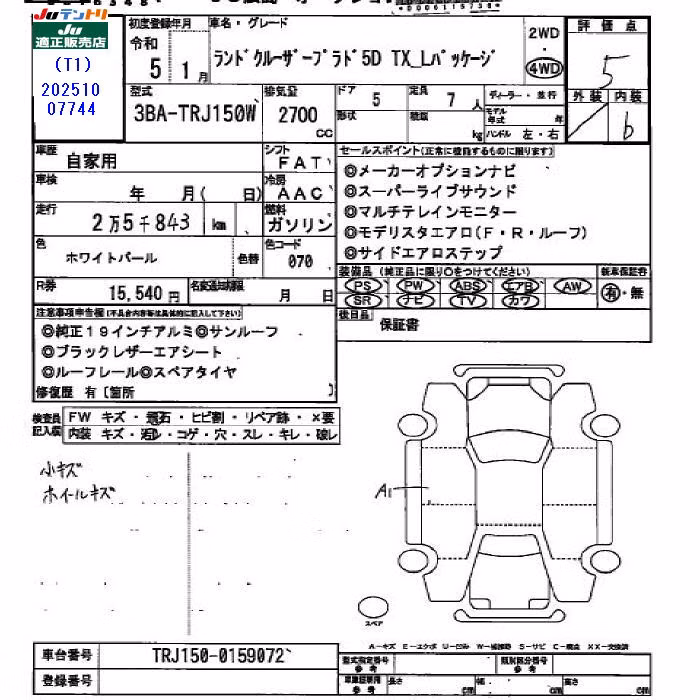 Juテントリ
Ju
適正販売店
(T1)
202510
07744
初度登録年月
令和
5 1月
車名・グレード
ランドクルーザープラド5D TX_Lパッケージ
2WD
4WD
評価点
5
外装 内装
b
型式
3BA-TRJ150W
排気量
2700
cc
ドア
5
定員
7 人
形状
積載
kg
ディーラー・並行
モデル年式 年
ハンドル 左・右
車歴
自家用
シフト
FAT
車検
年 月( 日)
冷房
AAC
走行
2万5千843 km
燃料
ガソリン
色
ホワイトパール
色替
色コード
070
R券
15,540円
名変通知期限
月 日
セールスポイント(正常に機能するものに限ります)
◎メーカーオプションナビ
◎スーパーライブサウンド
◎マルチテレインモニター
◎モデリスタエアロ(F・R・ルーフ)
◎サイドエアロステップ
装備品(純正品に限り○をつけてください)
PS PW ABS エアB AW
SR ナビ TV カワ
新車保証書
有・無
後日品
保証書
注意事項申告欄(不具合内容等は具体的に記入して下さい)
◎純正19インチアルミ◎サンルーフ
◎ブラックレザーエアシート
◎ルーフレール◎スペアタイヤ
修復歴 有〔箇所 〕
検査員記入欄
FW キズ・飛石・ヒビ割・リペア跡・×要
内装 キズ・汚れ・コゲ・穴・スレ・キレ・破レ
小キズ
ホイールキズ
A1
スペア
A-キズ E-エクボ U-凹み W-補修跡 S-サビ C-腐食 XX-交換済
車台番号
TRJ150-0159072
登録番号
型式指定番号
参考
類別区分番号
参考
車庫証明用
参考
長さ cm
幅 cm
高さ cm